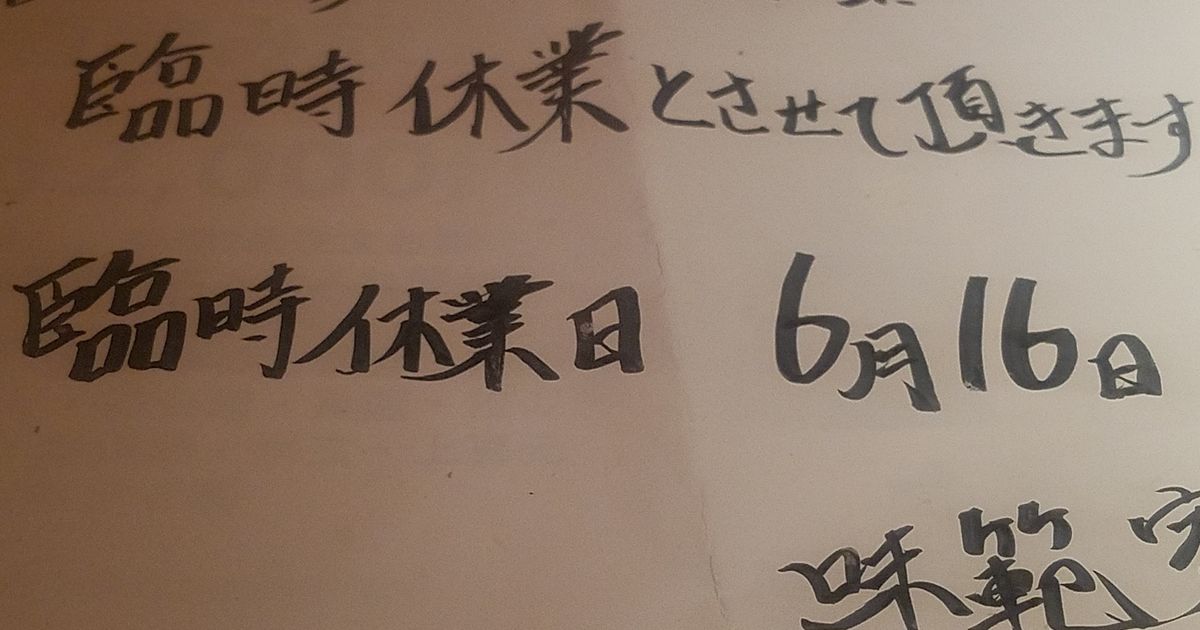 臨時休業とさせて頂きます
臨時休業日 6月16日
味範